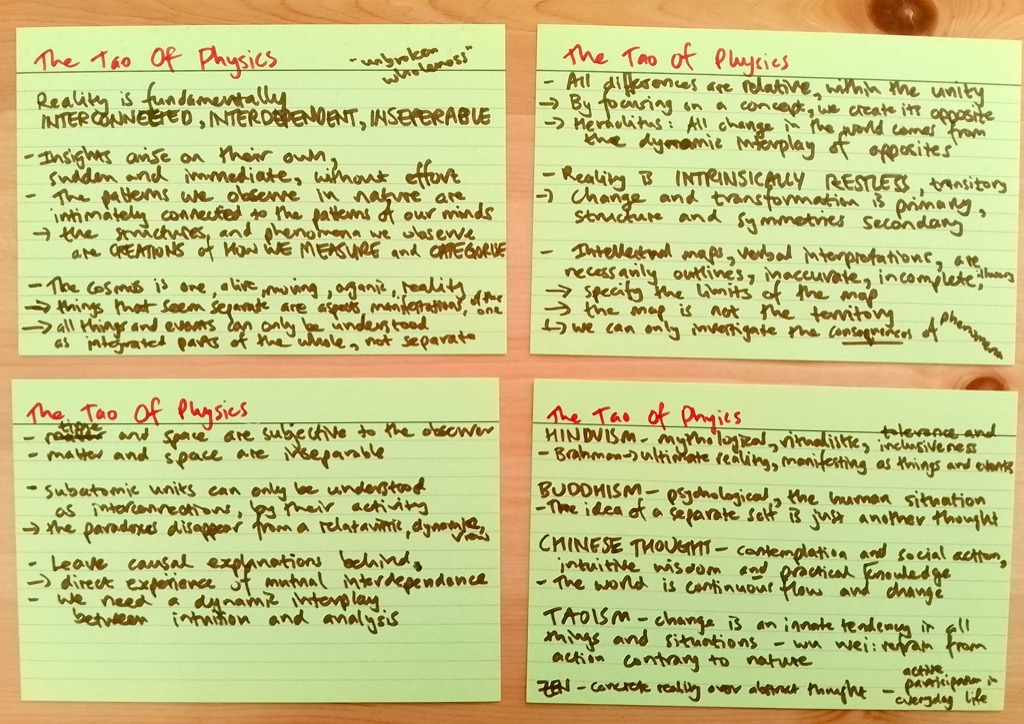 The Tao Of Physics
- "unbroken
wholeness"
Reality is fundamentally
INTERCONNECTED, INTERDEPENDENT, INSEPERABLE
- Insights arise on their own,
sudden and immediate, without effort
- The patterns we observe in nature are
intimately connected to the patterns of our minds
→ the structures, and phenomena we observe
are CREATIONS of HOW WE MEASURE and CATEGORISE
- The cosmos is one, alive, moving, organic, reality
→ things that seem separate are aspects, manifestations, of the one
→ all things and events can only be understood
as integrated parts of the whole, not separate
The Tao Of Physics
- All differences are relative, within the unity
→ By focusing on a concept, we create its opposite
→ Heraclitus: All change in the world comes from
the dynamic interplay of opposites
- Reality is INTRINSICALLY RESTLESS, transitory
→ Change and transformation is primary,
structure and symmetries secondary
- Intellectual maps, verbal interpretations, are
necessarily outlines, inaccurate, incomplete, illusory
→ specify the limits of the map
→ the map is not the territory
↳ we can only investigate the consequences of phenomena
The Tao Of Physics
- time and space are subjective to the observer
- matter and space are inseparable
- Subatomic units can only be understood
as interconnections, by their activity
→ the paradoxes disappear from a relativistic, dynamic, view
- Leave causal explanations behind,
→ direct experience of mutual interdependence
- We need a dynamic interplay
between intuition and analysis
The Tao Of Phyics
HINDUISM - mythological, ritualistic, tolerance and
inclusiveness
- Brahman → ultimate reality, manifesting as things and events
BUDDHISM - psychological, the human situation
- The idea of a separate self is just another thought
CHINESE THOUGHT - contemplation and social action,
intuitive wisdom and practical knowledge
- The world is continuous flow and change
TAOISM - change is an innate tendency in all
things and situations - wu wei: refrain from
action contrary to nature
ZEN - concrete reality over abstract thought - active
participation in
everyday life